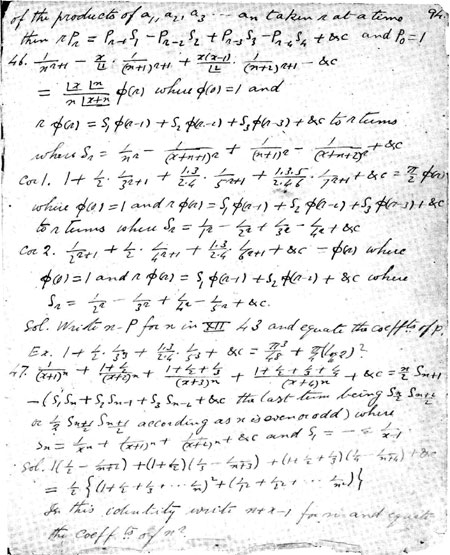 of the products of a₁, a₂, a₃ ... aₙ taken r at a time 94
then r Pᵣ = Pᵣ₋₁S₁ − Pᵣ₋₂S₂ + Pᵣ₋₃S₃ − Pᵣ₋₄S₄ + &c and P₀=1
46. 1/n^{r+1} − x/⌊1 · 1/(n+1)^{r+1} + x(x−1)/⌊2 · 1/(n+2)^{r+1} − &c
= ⌊x ⌊n / n⌊x+n φ(r) where φ(0)=1 and
r φ(r) = S₁φ(r−1) + S₂φ(r−2) + S₃φ(r−3) + &c to r terms
where Sᵣ = 1/n^r − 1/(x+n+1)^r + 1/(n+1)^r − 1/(x+n+2)^r + &c
Cor 1. 1 + 1/2 · 1/3^{r+1} + 1.3/2.4 · 1/5^{r+1} + 1.3.5/2.4.6 · 1/7^{r+1} + &c = π/2 φ(r)
where φ(0)=1 and r φ(r) = S₁φ(r−1) + S₂φ(r−2) + S₃φ(r−3) + &c
to r terms where Sᵣ = 1/1^r − 1/2^r + 1/3^r − 1/4^r + &c
Cor 2. 1/2^{r+1} + 1/2 · 1/4^{r+1} + 1.3/2.4 · 1/6^{r+1} + &c = φ(r) where
φ(0)=1 and r φ(r) = S₁φ(r−1) + S₂φ(r−2) + &c where
Sᵣ = 1/2^r − 1/3^r + 1/4^r − 1/5^r + &c.
Sol. Write n−P for n in XII 43 and equate the coeff^{ts} of P.
Ex. 1 + 1/2 · 1/3³ + 1.3/2.4 · 1/5³ + &c = π³/48 + π/4 (log 2)².
47. 1/(x+1)^n + (1+1/2)/(x+2)^n + (1+1/2+1/3)/(x+3)^n + (1+1/2+1/3+1/4)/(x+4)^n + &c = n/2 Sₙ₊₁
− (S₁Sₙ + S₂Sₙ₋₁ + S₃Sₙ₋₂ + &c the last term being S_{n/2} S_{(n+2)/2}
or 1/2 S_{(n+1)/2} S_{(n+1)/2} according as n is even or odd) where
Sₙ = 1/x^n + 1/(x+1)^n + 1/(x+2)^n + &c and S₁ =
Sol. 1(1/1 − 1/(m+1)) + (1+1/2)(1/2 − 1/(m+2)) + (1+1/2+1/3)(1/3 − 1/(m+3)) +
= 1/2 {(1+1/2+1/3+ ... 1/m)² + (1/1² + 1/2² + ... 1/m²)}
In this identity write n+x−1 for m and equate
the coeff^{ts} of n^n.